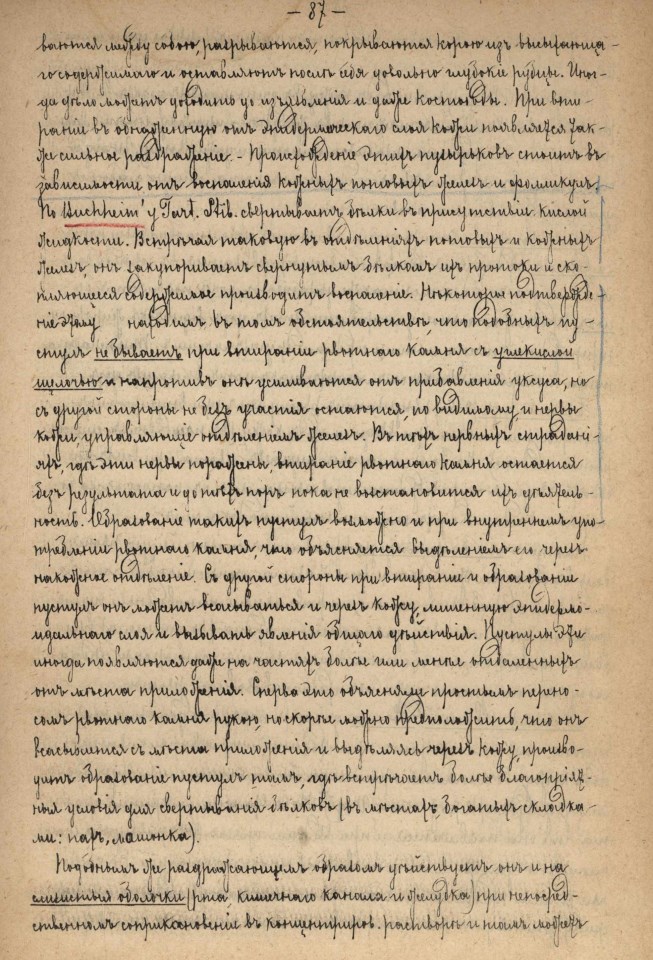 — 87 —
ваются между собою, разрываются, покрываются корою изъ высыхающа-
го содержимаго и оставляютъ послѣ себя довольно глубокіе рубцы. Иног-
да дѣло можетъ доходить до изъязвленія и даже костоѣды. При вти-
раніи въ обнаженную отъ эпидермическаго слоя кожи появляется так-
же сильное раздраженіе. – Происхожденіе этихъ пузырьковъ стоитъ въ
зависимости отъ воспаленія кожныхъ потовыхъ железъ и фолликулъ.
По Buchheim'у Tart. Stib. свертываетъ бѣлки въ присутствіи кислой
жидкости. Встрѣчая таковую въ отдѣленіяхъ потовыхъ и кожныхъ
железъ, онъ закупориваетъ свернутымъ бѣлкомъ ихъ протоки и ско-
пляющееся содержимое производитъ воспаленіе. Нѣкоторое подтвержде-
ніе этому находимъ въ томъ обстоятельствѣ, что подобныхъ пу-
стулъ не бываетъ при втираніи рвотнаго камня съ углекислой
щелочью и напротивъ онѣ усиливаются отъ прибавленія уксуса, но
съ другой стороны не безъ участія остаются, по видимому, и нервы
кожи, управляющіе отдѣленіемъ железъ. Въ тѣхъ нервныхъ страдані-
яхъ, гдѣ эти нервы поражены, втираніе рвотнаго камня остается
безъ результата и до тѣхъ поръ пока не возстановится ихъ дѣятель-
ность. Образованіе такихъ пустулъ возможно и при внутреннемъ упо-
требленіи рвотнаго камня, что объясняется выдѣленіемъ его черезъ
накожное отдѣленіе. Съ другой стороны при втираніе и образованіе
пустулъ онъ можетъ всасываться и черезъ кожу, лишенную эпидермо-
идальнаго слоя и вызывать явленія общаго дѣйствія. Пустулы эти
иногда появляются даже на частяхъ болѣе или менѣе отдаленныхъ
отъ мѣста приложенія. Сперва это объясняли простымъ перено-
сомъ рвотнаго камня рукою, но скорѣе можно предположить, что онъ
всасывается съ мѣста приложенія и выдѣляясь черезъ кожу, произво-
дитъ образованіе пустулъ тамъ, гдѣ встрѣчаетъ болѣе благопріят-
ныя условія для свертыванія бѣлковъ (въ мѣстахъ, богатыхъ складка-
ми: пахъ, мошонка).
Подобнымъ же раздражающимъ образомъ дѣйствуетъ онъ и на
слизистыя оболочки (рта, кишечнаго канала и желудка) при непосред-
ственномъ соприкосновеніе въ концентриров. растворѣ и тамъ можетъ